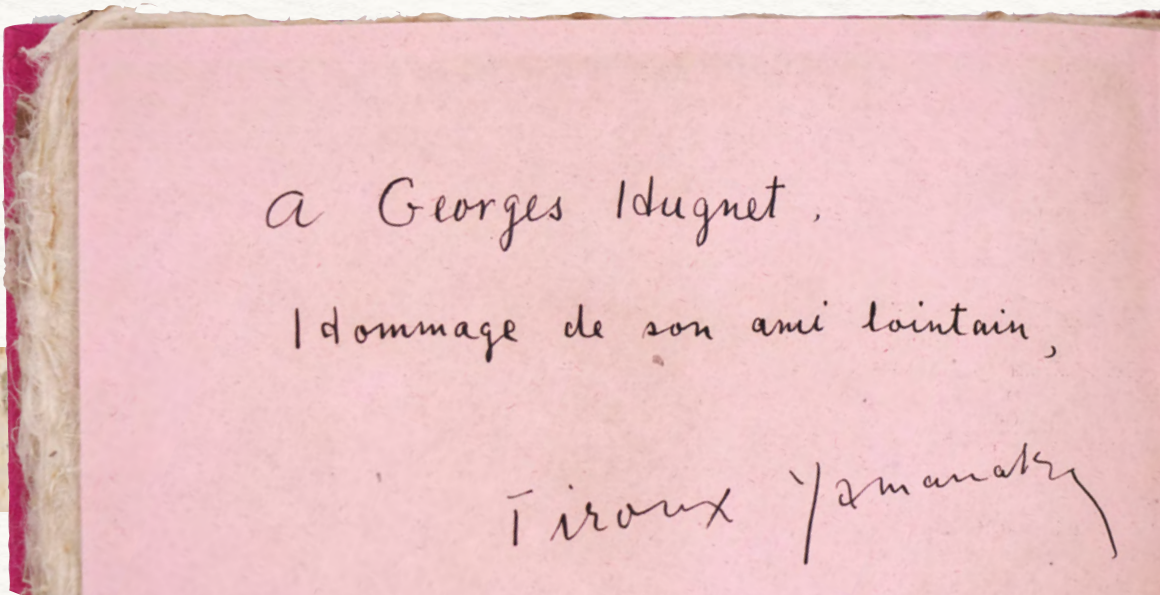 A Georges Hugnet.
Hommage de son ami lointain,
Tiroux Yamanaka